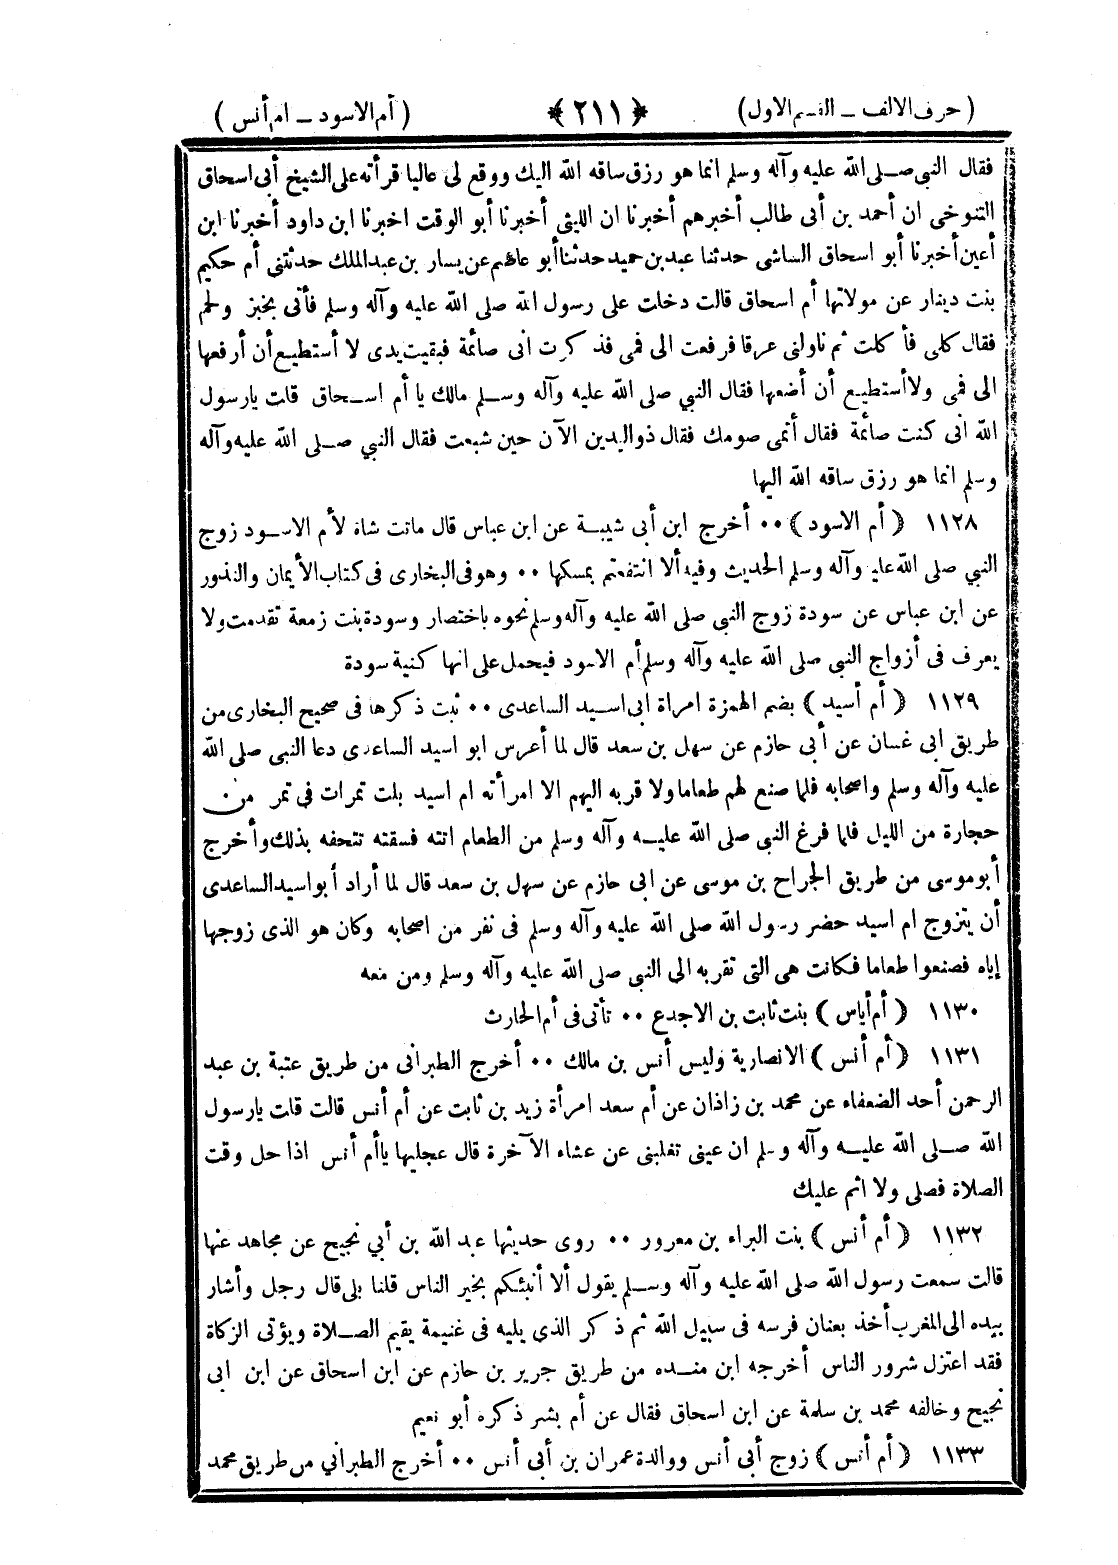 ( حرف الالف ـ القسم الاول) ﴿ ٢١١ ﴾ ( أم الاسود ـ ام أنس )
فقال النبي صلى الله عليه وآله وسلم انما هو رزق ساقه الله اليك ووقع لى عاليا قرأته على الشيخ أبى اسحاق
التنوخى ان أحمد بن أبى طالب أخبرهم أخبرنا ان الليثى أخبرنا أبو الوقت اخبرنا ابن داود أخبرنا ابن
أعين أخبرنا أبو اسحاق الساشى حدثنا عبد بن حميد حدثنا أبو عاصم عن يسار بن عبد الملك حدثتنى أم حكيم
بنت دينار عن مولاتها أم اسحاق قالت دخلت على رسول الله صلى الله عليه وآله وسلم فأتى بخبز ولحم
فقال كلى فأكلت ثم ناولنى عرقا فرفعت الى فمى فذكرت انى صائمة فبقيت يدى لا أستطيع أن أرفعها
الى فمى ولا أستطيع أن أضعها فقال النبي صلى الله عليه وآله وسلم مالك يا أم اسحاق قات يارسول
الله انى كنت صائمة فقال أتمى صومك فقال ذو اليدين الآن حين شبعت فقال النبي صلى الله عليه وآله
وسلم انما هو رزق ساقه الله اليها
١١٢٨ ( أم الاسود ) ٠٠ أخرج ابن أبى شيبة عن ابن عباس قال ماتت شاة لأم الاسود زوج
النبي صلى الله عليه وآله وسلم الحديث وفيه ألا انتفعتم بمسكها ٠٠ وهو فى البخارى فى كتاب الأيمان والنذور
عن ابن عباس عن سودة زوج النبى صلى الله عليه وآله وسلم نحوه باختصار وسودة بنت زمعة تقدمت ولا
يعرف فى أزواج النبي صلى الله عليه وآله وسلم أم الاسود فيحمل على انها كنية سودة
١١٢٩ ( أم أسيد ) بضم الهمزة امراة ابى اسيد الساعدى ٠٠ ثبت ذكرها فى صحيح البخارى من
طريق ابى غسان عن أبى حازم عن سهل بن سعد قال لما أعرس ابو اسيد الساعدى دعا النبى صلى الله
عليه وآله وسلم واصحابه فلما صنع لهم طعاما ولا قربه اليهم الا امرأته ام اسيد بلت تمرات فى تمر من
حجارة من الليل فلما فرغ النبى صلى الله عليه وآله وسلم من الطعام اتته فسقته تتحفه بذلك وأخرج
أبو موسى من طريق الجراح بن موسى عن ابى حازم عن سهل بن سعد قال لما أراد أبو اسيد الساعدى
أن يتزوج ام اسيد حضر رسول الله صلى الله عليه وآله وسلم فى نفر من اصحابه وكان هو الذى زوجها
إياه فصنعوا طعاما فكانت هى التى تقربه الى النبى صلى الله عليه وآله وسلم ومن معه
١١٣٠ ( أم أياس ) بنت ثابت بن الاجدع ٠٠ تأتى فى أم الحارث
١١٣١ ( أم أنس ) الانصارية وليس أنس بن مالك ٠٠ أخرج الطبرانى من طريق عتبة بن عبد
الرحمن أحد الضعفاء عن محمد بن زاذان عن أم سعد امرأة زيد بن ثابت عن أم أنس قالت قات يارسول
الله صلى الله عليه وآله وسلم ان عينى تغلبنى عن عشاء الآخرة قال عجليها ياأم أنس اذا حل وقت
الصلاة فصلى ولا اثم عليك
١١٣٢ ( أم أنس ) بنت البراء بن معرور ٠٠ روى حديثها عبد الله بن أبي نجيح عن مجاهد عنها
قالت سمعت رسول الله صلى الله عليه وآله وسلم يقول ألا أنبئكم بخير الناس قلنا بلى قال رجل وأشار
بيده الى المغرب أخذ بعنان فرسه فى سبيل الله ثم ذكر الذى يليه فى غنيمة يقيم الصلاة ويؤتى الزكاة
فقد اعتزل شرور الناس أخرجه ابن منده من طريق جرير بن حازم عن ابن اسحاق عن ابن ابى
نجيح وخالفه محمد بن سلمة عن ابن اسحاق فقال عن أم بشر ذكره أبو نعيم
١١٣٣ ( أم أنس ) زوج أبى أنس ووالدة عمران بن أبى أنس ٠٠ أخرج الطبراني من طريق محمد